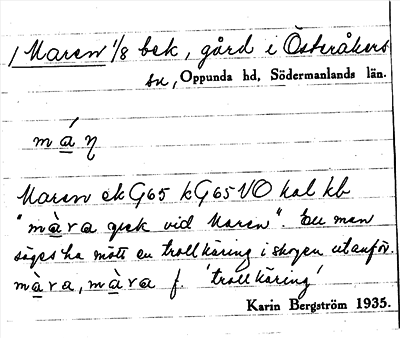 1 Maren 1/8 bek, gård i Österåkers
sn, Oppunda hd, Södermanlands län.
máŋ
Maren ek G65 kG65 VO hal kb
"màra gick vid Maren". En man
säges ha mött en trollkäring i skogen utanför.
màra, màra f. 'trollkäring'
Karin Bergström 1935.